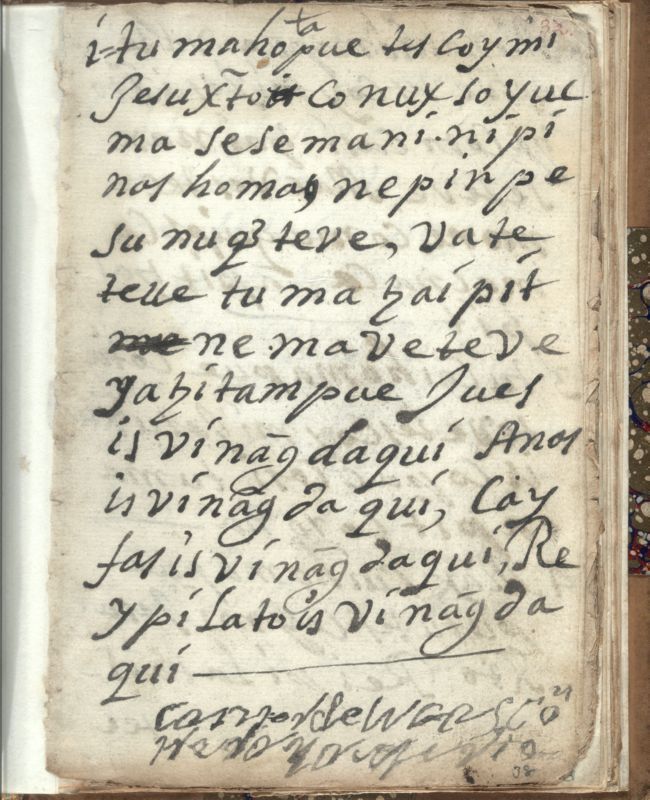 i-tu mahota pue tes coymi
Jesu Xp̃to co nux so yuc
ma sesemani. ni pi
nas homas nepin pe
su nuqȝ teve, vate
teue tu ma hai pit
ne maveteve
yahitampue Jues
is vinãg daqui Anos
is vinãg da qui, Cay
fas is vinãg daqui, Re
y pilato is vinãg da
qui